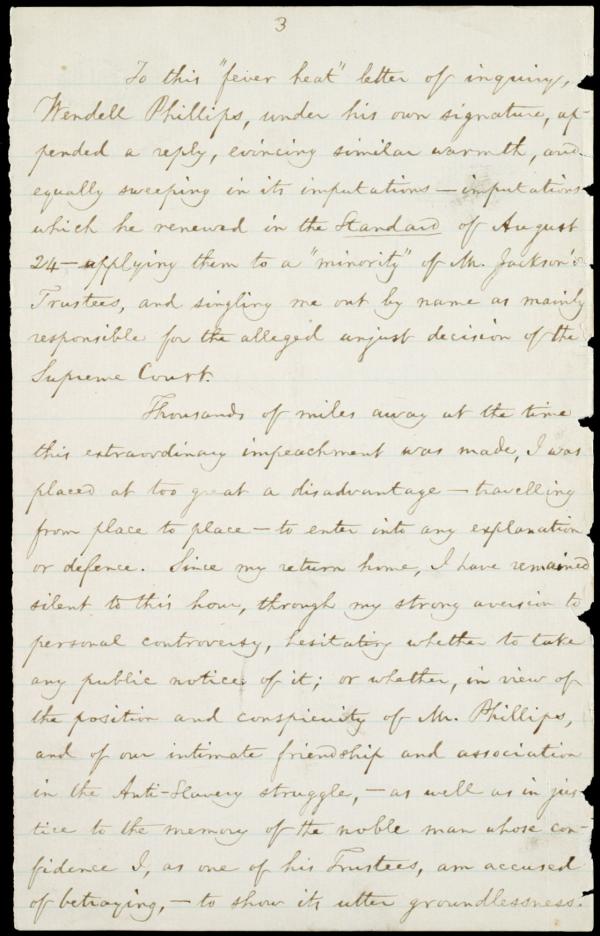 3
To this "fever heat" letter of inquiry,
Wendell Phillips, under his own signature, ap-
pended a reply, evincing similar warmth, and
equally sweeping in its imputations — imputations
which he renewed in the Standard of August
24 — applying them to a "minority" of Mr. Jackson's
Trustees, and singling me out by name as mainly
responsible for the alleged unjust decision of the
Supreme Court.
Thousands of miles away at the time
this extraordinary impeachment was made, I was
placed at too great a disadvantage — travelling
from place to place — to enter into any explanation
or defence. Since my return home, I have remained
silent to this hour, through my strong aversion to
personal controversy, hesitating whether to take
any public notice of it; or whether, in view of
the position and conspicuity of Mr. Phillips,
and of our intimate friendship and association
in the Anti-Slavery struggle, — as well as in jus-
tice to the memory of the noble man whose con-
fidence I, as one of his Trustees, am accused
of betraying, — to show its utter groundlessness.